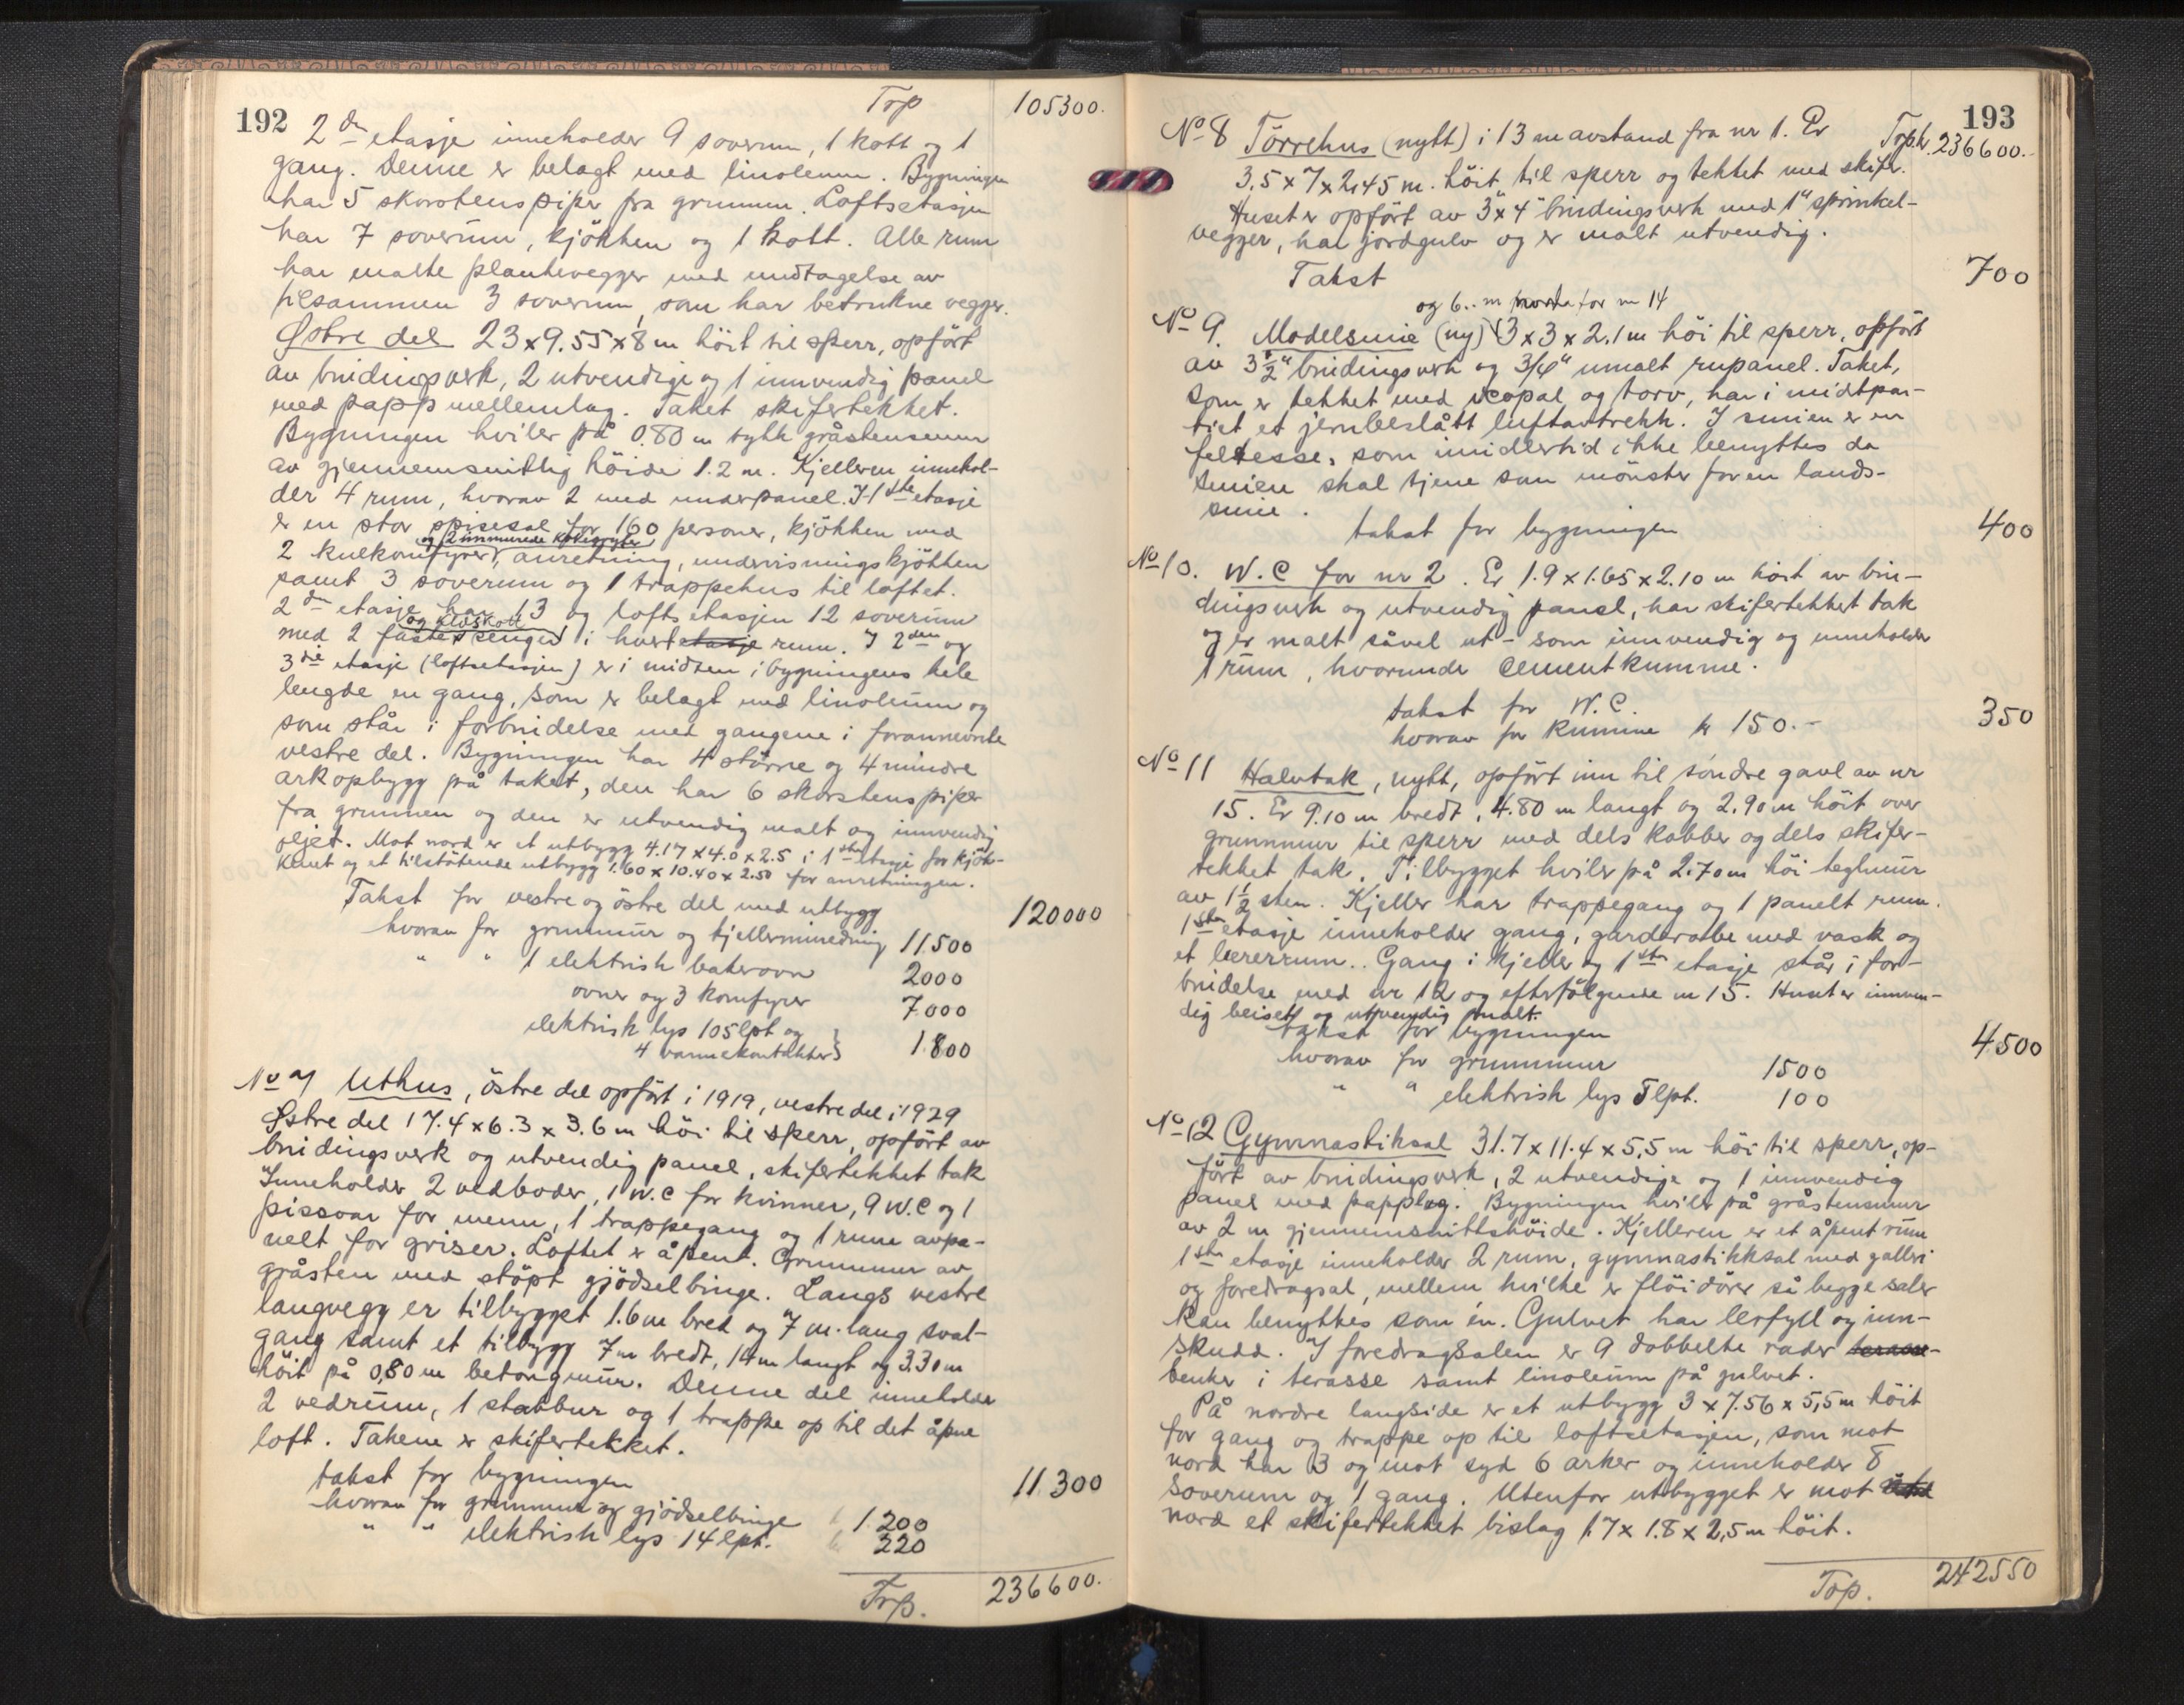 192
Trp 105300.
2den etasje inneholder 9 soverum, 1 kott og 1
gang. Denne er belagt med linoleum. Bygningen
har 5 skorstenspiper fra grunnen. Loftsetasjen
har 7 soverum, kjökken og 1 kott. Alle rum
har malte plankevegger med undtagelse av
tilsammen 3 soverum, som har betrukne vegger.
Østre del 23x9.55x8m höit til sperr, opfört
av bindingsverk, 2 utvendige og 1 innvendig panel
med papp mellemlag. Taket skifertekket.
Bygningen hviler på 0.80 m tykk gråstensmur
av gjennemsnittlig höide 1.2 m. Kjelleren innehol-
der 4 rum, hvorav 2 med underpanel. I 1ste etasje
er en stor spisesal for 160 personer, kjökken med
og 2 innmurede kokegryter
2 kulkomfyrer, anretning, undervisningskjökken
samt 3 soverum og 1 trappehus til loftet.
2den etasje har 13 og loftsetasjen 12 soverum
og klæskott
med 2 faste senger i hvert etasje rum. I 2den og
3die etasje (loftsetasjen) er i midten i bygningens hele
lengde en gang, som er belagt med linoleum og
som står i forbindelse med gangene i forannevnte
vestre del. Bygningen har 4 större og 4 mindre
arkopbygg på taket, den har 6 skorstenspiper
fra grunnen og den er utvendig malt og innvendig
oljet. Mot nord er et utbygg 4.17 x 4.0 x 2.5 i 1ste etasje for kjök-
kenet og et tilstötende utbygg 1.60 x 10.40 x 2.50 for anretningen.
Takst for vestre og östre del med utbygg 120000
hvorav for grunnmur og kjellerinnredning 11500
" " 1 elektrisk bakerovn 2000
ovner og 3 komfyrer 7000
elektrisk lys 105 lpt og
4 varmekontakter } 1800
No 7 Uthus, östre del opfört i 1919, vestre del i 1929
Østre del 17.4 x 6.3 x 3.6 m höi til sperr, opfört av
bindingsverk og utvendig panel, skifertekket tak
Inneholder 2 vedboder, 1 W.C for kvinner, 9 W.C og 1
pissoar for menn, 1 trappegang og 1 rum avpa-
nelt for griser. Loftet er åpent. Grunnmur av
gråsten med stöpt gjödselbinge. Langs vestre
langvegg er tilbygget 1.6m bred og 7 m. lang sval-
gang samt et tilbygg 7m bredt, 14m langt og 3.30m
höit på 0,80 m betongmur. Denne del inneholder
2 vedrum, 1 stabbur og 1 trappe op til det åpne
loft. Takene er skifertekket.
takst for bygningen 11.300
hvorav for grunnmur og gjödselbinge 1.200
" " elektrisk lys 14 lpt. 220
Trp. 236600.
193
No 8 Törrehus (nytt) i 13 m avstand fra nr 1. Er Trp.kr. 236600.-
3,5 x 7 x 2,45 m. höit til sperr og tekket med skifer.
Huset er opfört av 3" x 4" bindingsverk med 1" sprinkel-
vegger, har jordgulv og er malt utvendig.
Takst 700
og 6.. m norda for nr 14
No 9. Modelsmie (ny) 3 x 3 x 2.1 m höi til sperr, opfört
av 3 1/2" bindingsverk og 3/4" umalt rupanel. Taket,
som er tekket med icopal og torv, har i midtpar-
tiet et jernbeslått luftavtrekk. I smien er en
feltesse, som imidlertid ikke benyttes da
smien skal tjene som mönster for en lands-
smie.
takst for bygningen 400
No 10. W.C for nr 2. Er 1.9 x 1.65 x 2.10 m höit av bin-
dingsverk og utvendig panel, har skifertekket tak
og er malt såvel ut- som innvendig og inneholder
1 rum, hvorunder cementkumme.
takst for W.C. 350
hvorav for kumme kr 150.-
No 11 Halvtak, nytt, opfört inn til söndre gavl av nr
15. Er 9.10 m bredt, 4.80 m langt og 2.90 m höit over
grunnmur til sperr med dels kobber og dels skifer-
tekket tak. Tilbygget hviler på 2.70 m höi teglmur
av 1 1/2 sten. Kjeller har trappegang og 1 panelt rum.
1ste etasje inneholder gang, garderobe med vask og
et lærerrum.. Gang i kjeller og 1ste etasje står i for-
bindelse med nr 12 og efterfölgende nr 15. Huset er innven-
dig beiset og utvendig malt.
takst for bygningen 4500
hvorav for grunnmur 1500
" " elektrisk lys 5 lpt. 100
No 12 Gymnastiksal 31.7 x 11.4 x 5,5 m höi til sperr, op-
fört av bindingsverk, 2 utvendige og 1 innvendig
panel med papplag. Bygningen hviler på gråstensmur
av 2 m gjennemsnittshöide. Kjelleren er et åpent rum
1ste etasje inneholder 2 rum, gymnastikksal med galleri
og foredragsal, mellem hvilke er flöidörer så begge saler
kan benyttes som én. Gulvet har lerfyll og inn-
skudd. I foredragsalen er 9 dobbelte rader
benker i terasse samt linoleum på gulvet.
På nordre langside er et utbygg 3 x 7.56 x 5,5 m höit
for gang og trappe op til loftsetasjen, som mot
nord har 3 og mot syd 6 arker og inneholder 8
soverum og 1 gang. Utenfor utbygget er mot
nord et skifertekket bislag 1.7 x 1.8 x 2,5 m höit.
Trp. 242550